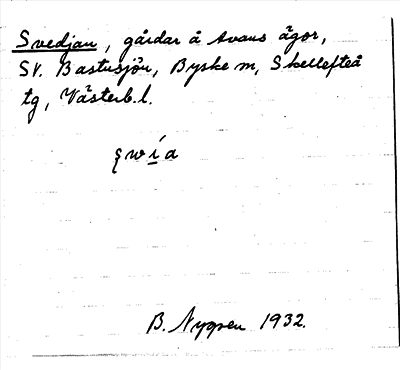 Svedjan, gårdar å Avans ägor,
SV. Bastusjön, Byske sn, Skellefteå
tg, Västerb. l.
ʂwía
B. Nygren 1932.